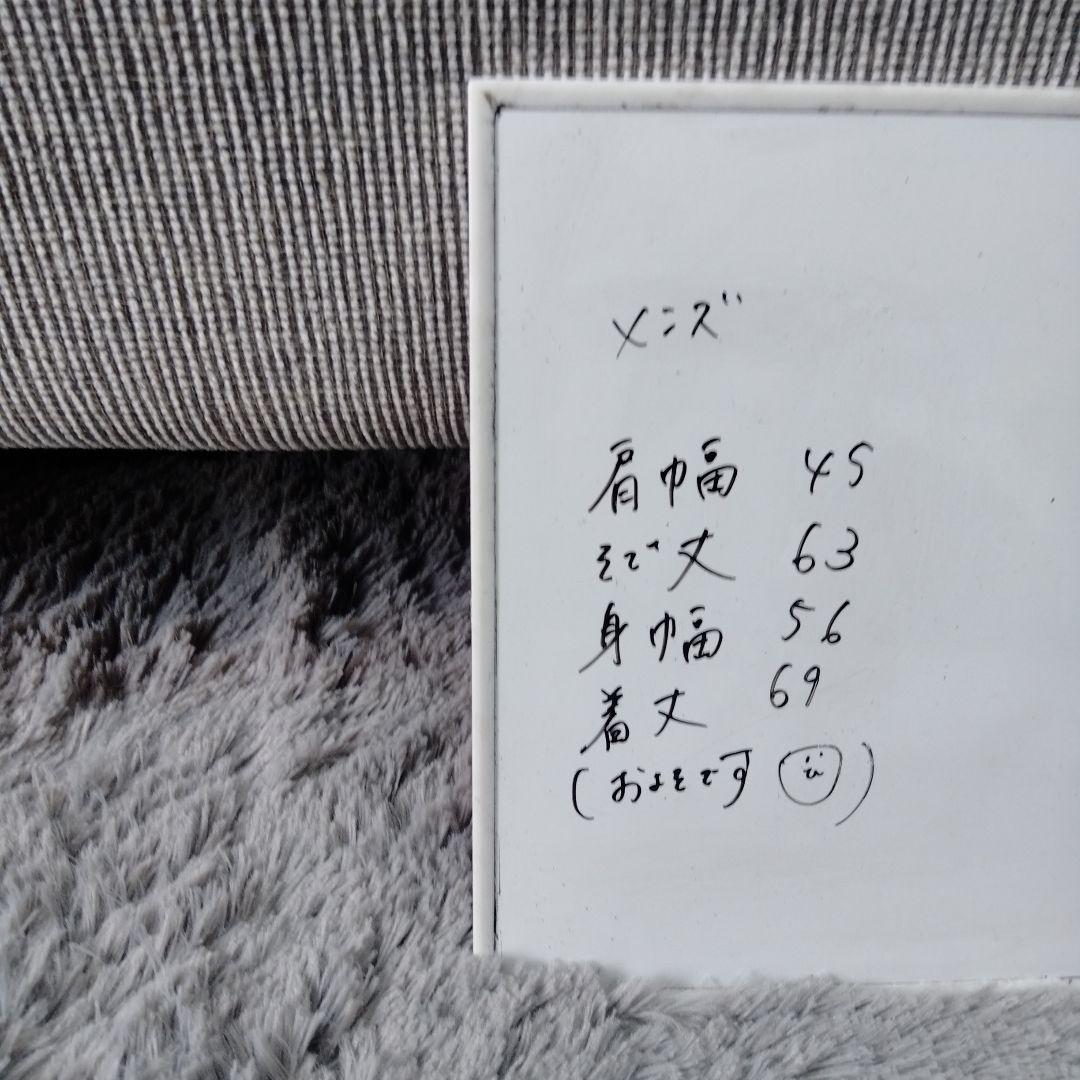 メンズ
肩幅 45
そで丈 63
身幅 56
着丈 69
(およそです)